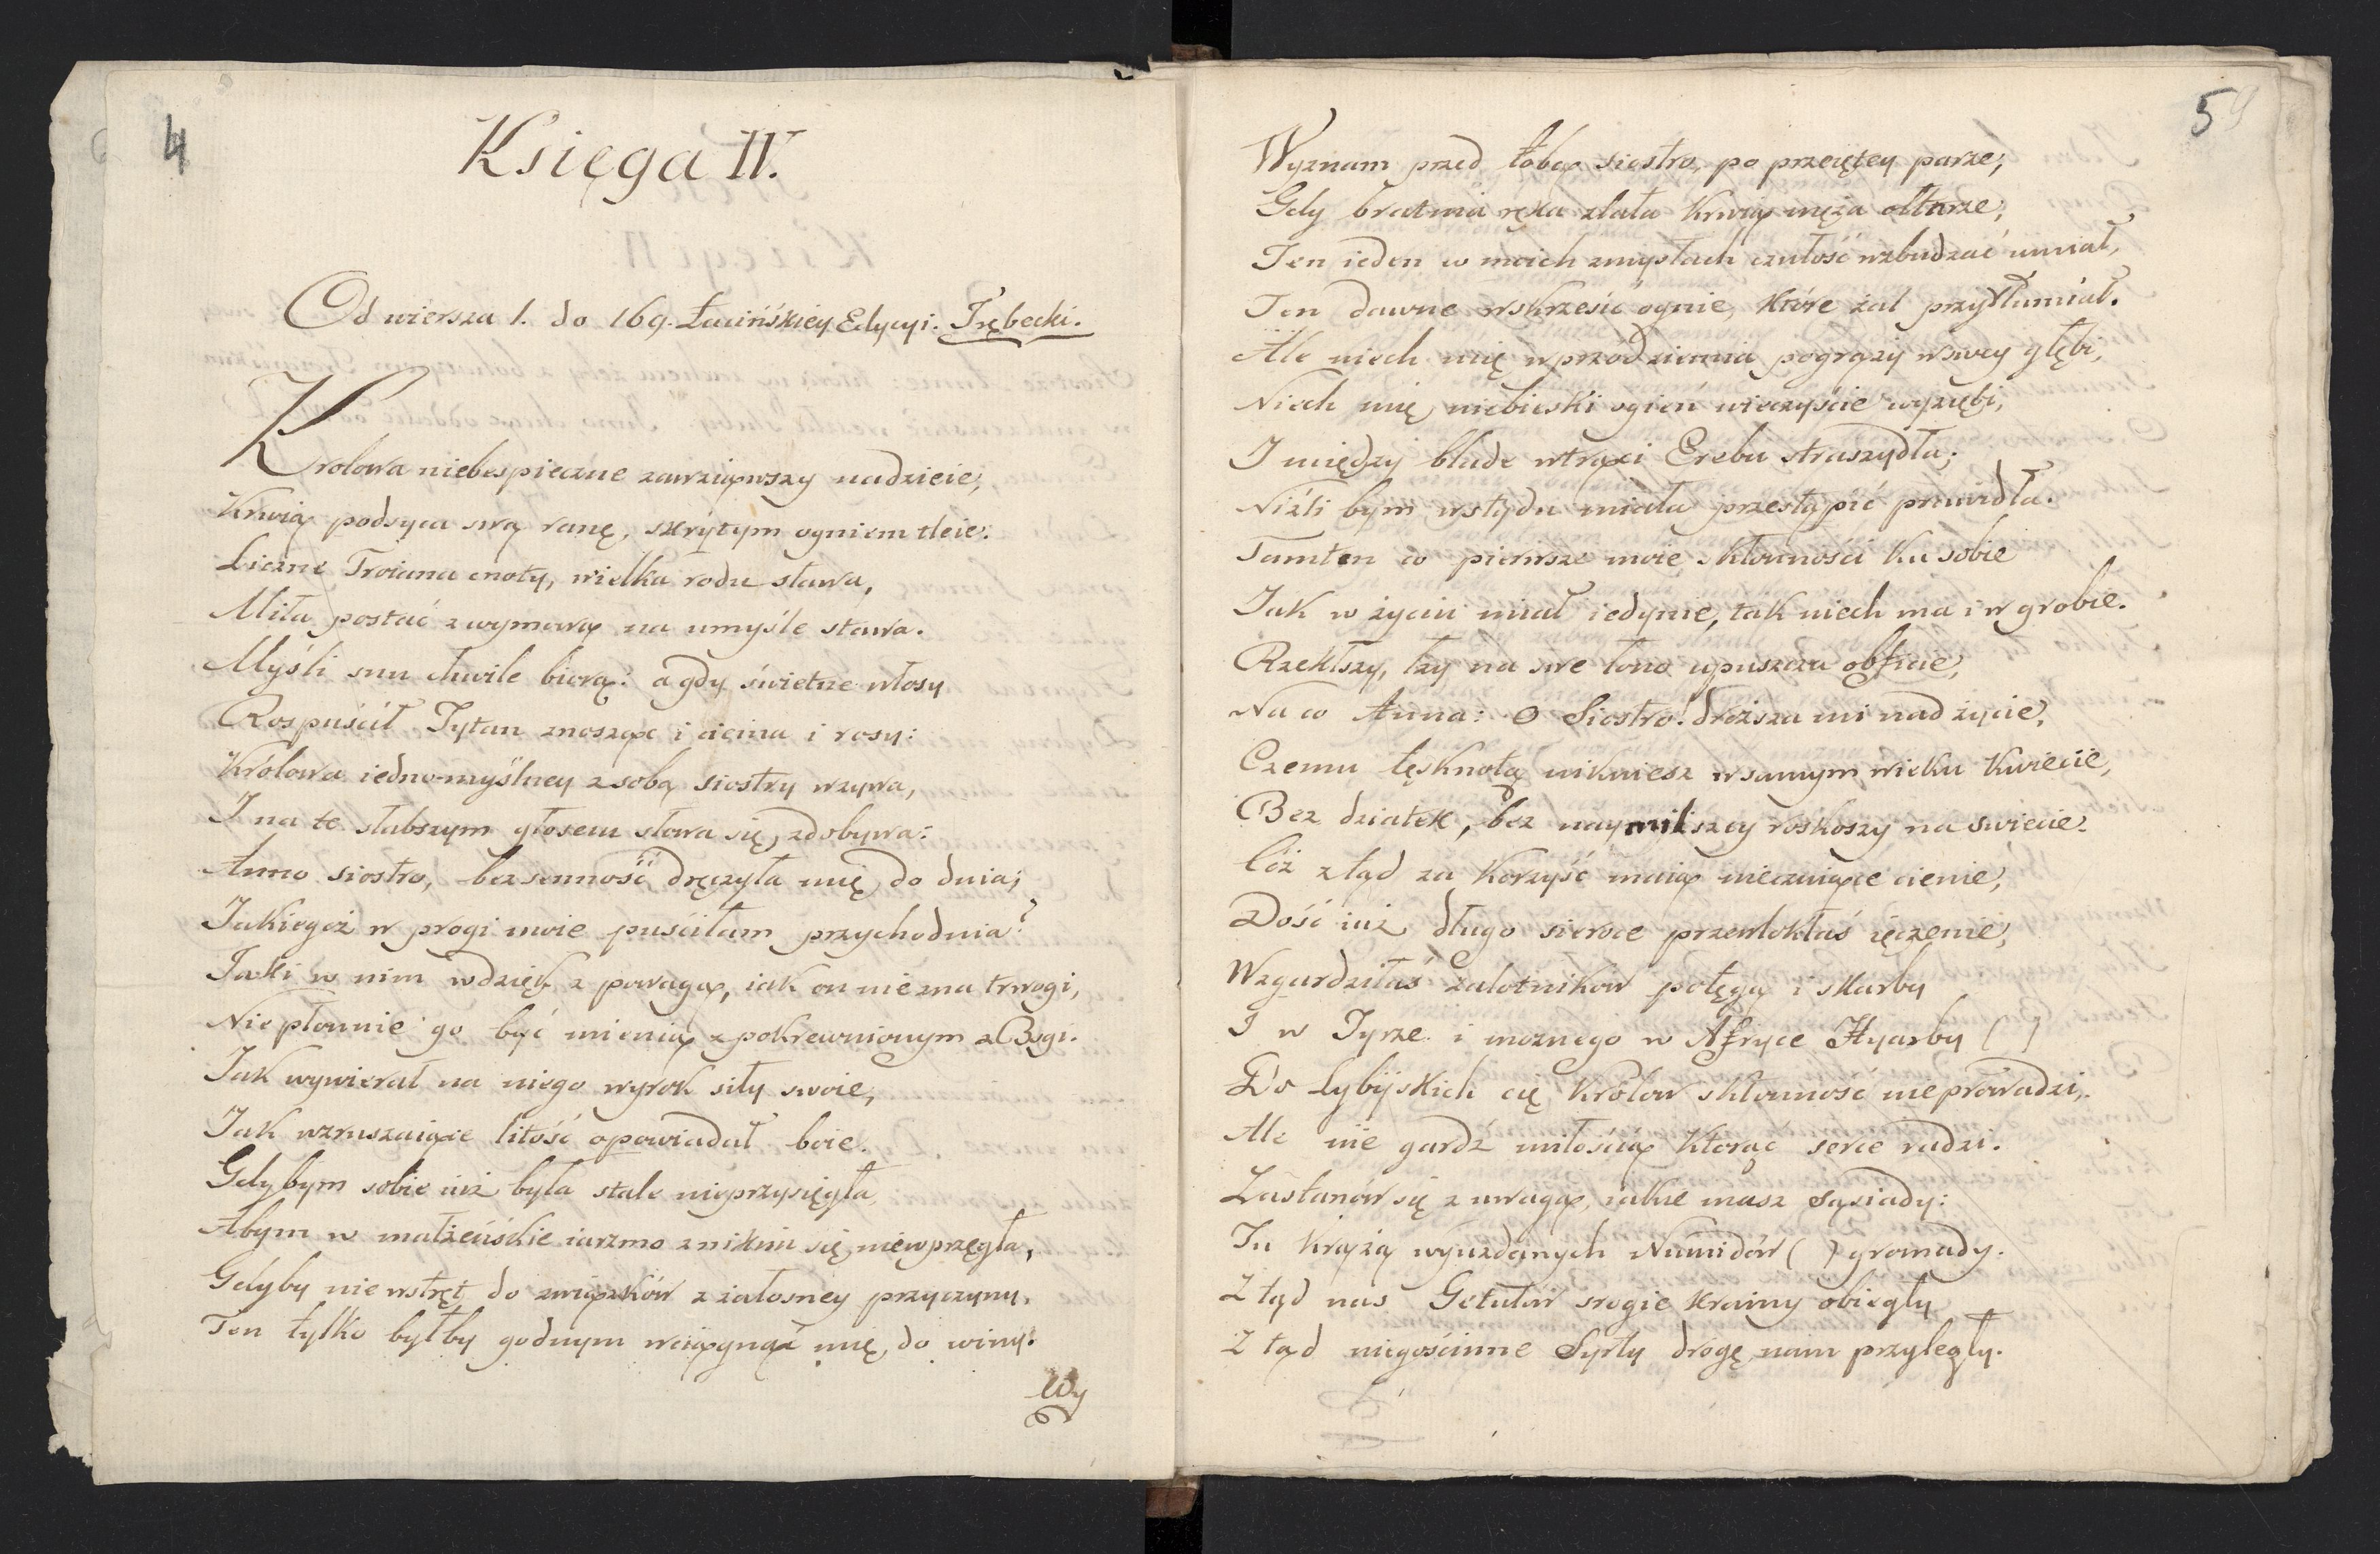 4
Księga IV.
Od wiersza 1. do 169. Łacińskiey Edycyi. Trębecki.
Krolowa niebespieczne zawziąwszy nadzieie,
Krwią podsyca swą ranę, skrytym ogniem tleie.
Liczne Troiana cnoty, wielka rodu sława,
Miła postać z wymową na umyśle stawa.
Myśli snu chwile biorą: a gdy świetne włosy
Rospuścił Tytan znosząc i cienia i rosy:
Królowa iedno-myślney z sobą siostry wzywa,
I na te słabszym głosem słowa się zdobywa:
Anno siostro, bezsenność dręczyła mię do dnia;
Jakiegoż w progi moie puściłam przychodnia?
Jaki w nim wdzięk z powagą, iak on nie zna trwogi,
Nie płonnie go być mienią spokrewnionym z Bogi.
Jak wywierał na niego wyrok siły swoie,
Jak wzruszaiące litość opowiadał boie.
Gdybym sobie iuż była stale nieprzysięgła,
Abym w małżeńskie iarzmo z nikim się niewprzęgła,
Gdyby nie wstręt do związków z żałosney przyczyny,
Ten tylko byłby godnym wciągnąć mię do winy.
Wy
5
Wyznam przed tobą siostro, po przeciętey parze,
Gdy bratnia ręka zlała krwią męża ołtarze,
Ten ieden w moich zmysłach czułość wzbudzać umiał,
Ten dawne wskrzesić ognie, które żal przytłumiał.
Ale niech mię wprzód ziemia pogrąży w swey głębi,
Niech mię niebieski ogień wieczyście wyziębi,
I między blade wtrąci Erebu straszydła;
Niźli bym wstydu miała przestąpić prawidła.
Tamten co pierwsze moie skłonności ku sobie
Jak w życiu miał iedynie, tak niech ma i w grobie.
Rzekłszy, łzy na swe łono upuszcza obficie,
Na co Anna: O Siostro! droższa mi nad życie,
Czemu tęsknotą wikniesz w samym wieku kwiecie,
Bez działek, bez naymilszey roskoszy na świecie.
Cóż z tąd za korzyść maią nieczuiące cienie,
Dość iuż długo sieroce przewlokłaś ięczenie,
Wzgardziłaś zalotników potęgą i skarby
I w Tyrze i możnego w Afryce Hyarby ( )
Do Lybijskich cię Królow skłonność nie prowadzi,
Ale nie gardź miłością którąć serce radzi.
Zastanów się z uwagą, iakie masz sąsiady:
Tu krążą wyuzdanych Numidów ( ) gromady.
Z tąd nas Getulów srogie krainy obiegły
Z tąd niegościnne Syrty drogę nam przyległy.